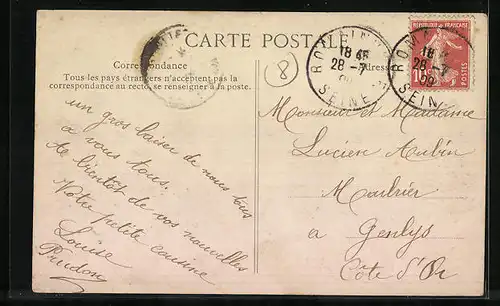 CARTE POSTALE
Correspondance
Tous les pays étrangers n'acceptent pas la
correspondance au recto, se renseigner à la poste.
un gros baiser de nous tous
a vous tous.
A bientôt de vos nouvelles
Votre petite cousine
Louise
Prudon
8
Adresse
ROMAIN
18 45
28 -7
09
SEINE
ROMA
18
28 -7
09
SEINE
10
POSTES
Monsieur et Madame
Lucien Aubin
a Genlys
Côte d'Or